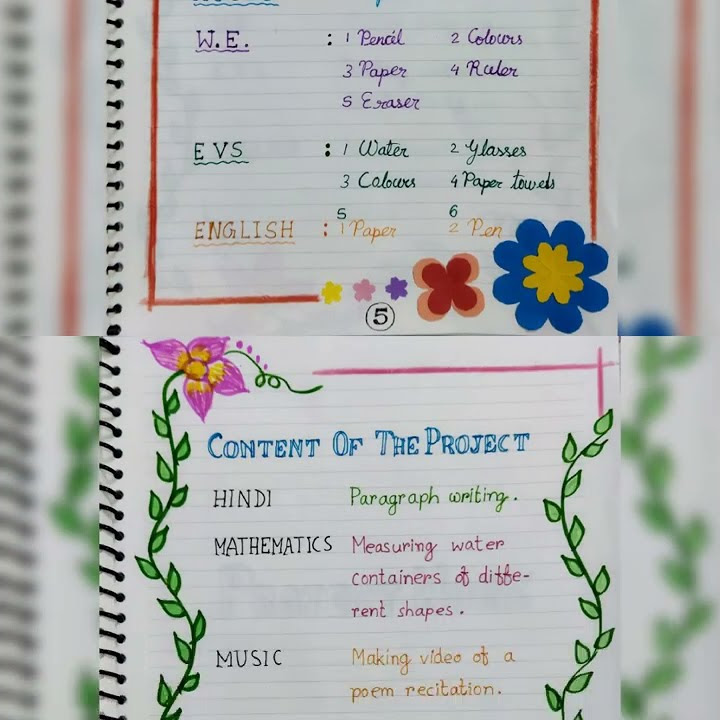 W.E. : 1 Pencil 2 Colours
3 Paper 4 Ruler
5 Eraser
EVS : 1 Water 2 Glasses
3 Colours 4 Paper towels
5 6
ENGLISH : 1 Paper 2 Pen
5
CONTENT OF THE PROJECT
HINDI Paragraph writing.
MATHEMATICS Measuring water
containers of diffe-
rent shapes.
MUSIC Making video of a
poem recitation.